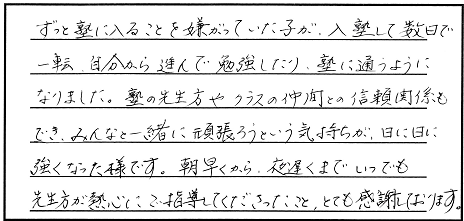 ずっと塾に入ることを嫌がっていた子が、入塾して数日で
一転、自分から進んで勉強したり、塾に通うように
なりました。塾の先生方やクラスの仲間との信頼関係も
でき、みんなと一緒に頑張ろうという気持ちが、日に日に
強くなった様です。朝早くから、夜遅くまでいつでも
先生方が熱心にご指導してくださったこと、とても感謝しております。